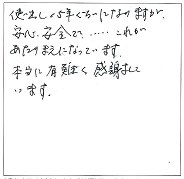 使い出し15年くらいになりますが、
安心、安全で、……これが
あたりまえになっています。
本当に有難く感謝して
います。